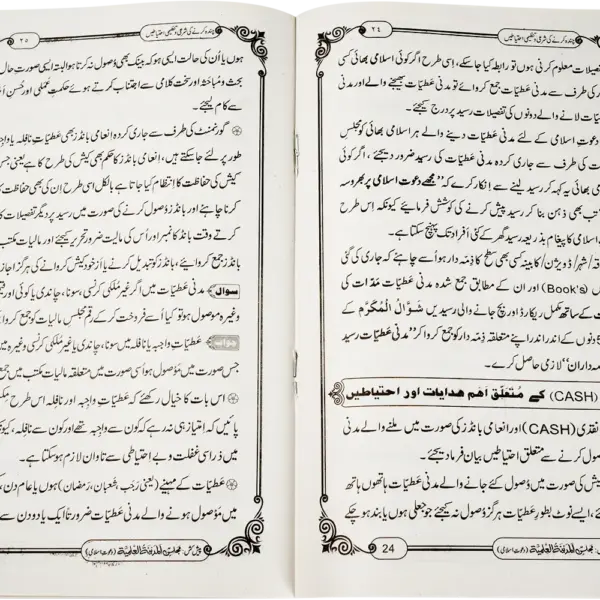 چندہ کرنے کی شرعی و تنظیمی احتیاطیں
٢٤
تفصیلات معلوم کرنی ہوں تو رابطہ کیا جاسکے، اِسی طرح اگر کوئی اسلامی بھائی کسی
کی طرف سے مدنی عطیّات جمع کروائے تو مدنی عطیّات بھیجنے والے اور مدنی
عطیّات لانے والے دونوں کی تفصیلات رسید پر درج کیجئے۔
دعوتِ اسلامی کے لئے مدنی عطیّات دینے والے ہر اسلامی بھائی کو مجلس
کی طرف سے جاری کردہ مدنی عطیّات کی رسید ضرور دیجئے، اگر کوئی
بھائی یہ کہہ کر رسید لینے سے اِنکار کرے کہ ”مجھے دعوتِ اسلامی پر بھروسہ
تب بھی ذہن بنا کر رسید پیش کرنے کی کوشش فرمائیے کیونکہ اِس طرح
اسلامی کا پیغام بذریعہ رسید گھر کے کئی اَفراد تک پہنچ سکتا ہے۔
شہر/ڈویژن/کابینہ کسی بھی سطح کا ذِمّہ دار ہو اُسے چاہئے کہ جاری کی گئی
(Book's) اور ان کے مطابق جمع شدہ مدنی عطیّات مَدّات کی
کے ساتھ مکمل ریکارڈ اور بچ جانے والی رسیدیں شَوَّالُ الْمُکَرَّم کے
دنوں کے اندر اندر اپنے متعلقہ ذِمّہ دار کو جمع کروا کر ”مدنی عطیّات رسید
ذمہ داران“ لازمی حاصل کرے۔
(CASH) کے مُتَعَلِّق اَهَم هدایات اور احتیاطیں
نقدی (CASH) اور انعامی بانڈز کی صورت میں ملنے والے مدنی
وصول کرنے سے متعلق احتیاطیں بیان فرما دیجئے۔
کیش کی صورت میں وُصول کئے جانے والے مدنی عطیّات ہاتھوں ہاتھ
ایسے نوٹ بطورِ عطیّات ہرگز وُصول نہ کیجئے جو جعلی ہوں یا بند ہو چکے
24
پیش کش: مجلس المدینة العلمیة (دعوتِ اسلامی)
چندہ کرنے کی شرعی و تنظیمی احتیاطیں
٢٥
ہوں یا اُن کی حالت ایسی ہو کہ بینک بھی وُصول نہ کرتا ہو البتہ ایسی صورتِ حال
بحث و مُباحثہ اور سخت کلامی سے اجتناب کرتے ہوئے حکمتِ عَمَلی اور حُسنِ
سے کام لیجئے۔
گورنمنٹ کی طرف سے جاری کردہ اِنعامی بانڈز بھی عطیّاتِ نافِلہ یا واجبہ
طور پر لئے جاسکتے ہیں، اِنعامی بانڈز کا حکم بھی کیش کی طرح کا ہے یعنی جس
کیش کی حفاظت کا اِنتظام کیا جاتا ہے بالکل اسی طرح اِن کی بھی حفاظت
کرنا چاہئے اور بانڈز وُصول کرنے کی صورت میں رسید پر دیگر تفصیلات کا
کرتے وقت بانڈ کا نمبر اور اُس کی مالیت ضرور تحریر کیجئے اور مالیات مکتب
بانڈز جمع کروائیے، بانڈز کو تبدیل کرنے یا اَز خود کیش کروانے کی ہرگز اجازت
سوال مدنی عطیّات میں اگر غیر مُلکی کرنسی، سونا، چاندی یا کوئی اور قیمتی
وغیرہ موصول ہو تو کیا اُسے فروخت کر کے رقم مجلسِ مالیات کو جمع کروا
جواب عطیّاتِ واجبہ یا نافِلہ میں سونا، چاندی یا غیر مُلکی کرنسی وغیرہ میں
جس صورت میں موصول ہو اُسی صورت میں متعلقہ مالیات مکتب میں جمع
اس بات کا خیال رکھئے کہ عطیّاتِ واجبہ اور نافِلہ اس طرح مِکس
پائیں کہ اِمتیاز ہی نہ رہے کہ کون سے واجبہ تھے اور کون سے نافِلہ، کیونکہ
میں ذرا سی غفلت و بے احتیاطی سے تاوان لازم ہوسکتا ہے۔
عطیّات کے مہینے (یعنی رَجَب، شَعْبان، رَمَضان) ہوں یا عام دن،
میں مَوصول ہونے والے مدنی عطیّات ضرورتاً ایک یا دو دن سے
پیش کش: مجلس المدینة العلمیة (دعوتِ اسلامی)